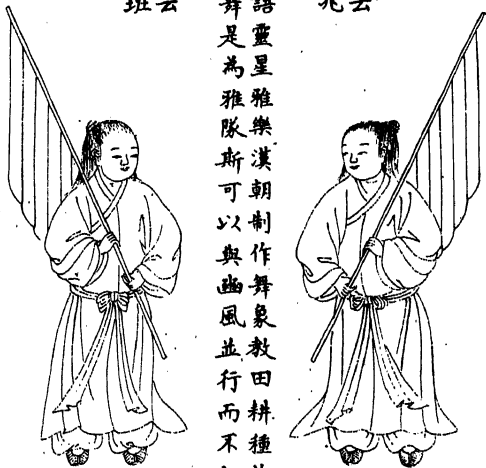 去
語靈星雅樂漢朝制作舞象教田耕種
舞是為雅隊斯可以與豳風並行而不
去
班